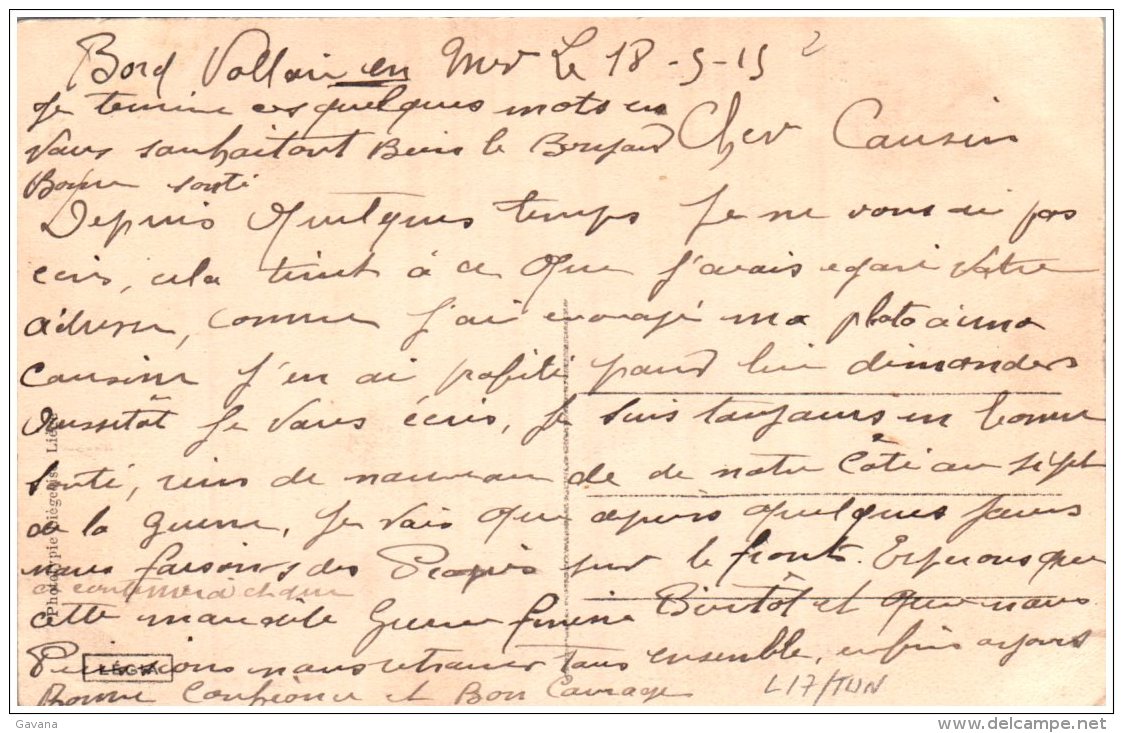 Bord Vollain en Mer Le 18-5-15 2
Cher Cousin
Depuis Quelques temps Je ne vous ai pas
écris, cela tient à ce Que J'avais egaré Votre
adresse, comme J'ai envoyé ma photo a ma
Cousine J'en ai profité pour lui demander
Aussitôt Je Vous écris, Je suis toujours en bonne
Santé, rien de nouveau de de notre Côté au sujet
de la Guerre, Je Vais Que depuis Quelques Jours
nous faisons des Progrès sur le front. Esperons que
ce continuera et que
cette maudite Guerre finira Bientôt et Que nous
Puissions nous retrouver tous ensemble, enfin ayons
Bonne Confiance et Bon Courage
Je termine ces quelques mots en
Vous souhaitant Bien le Bonjour
Bonne santé
Phototypie Liégeoise Liége
LÉGIA
L17/TUN
Gavana
www.delcampe.net